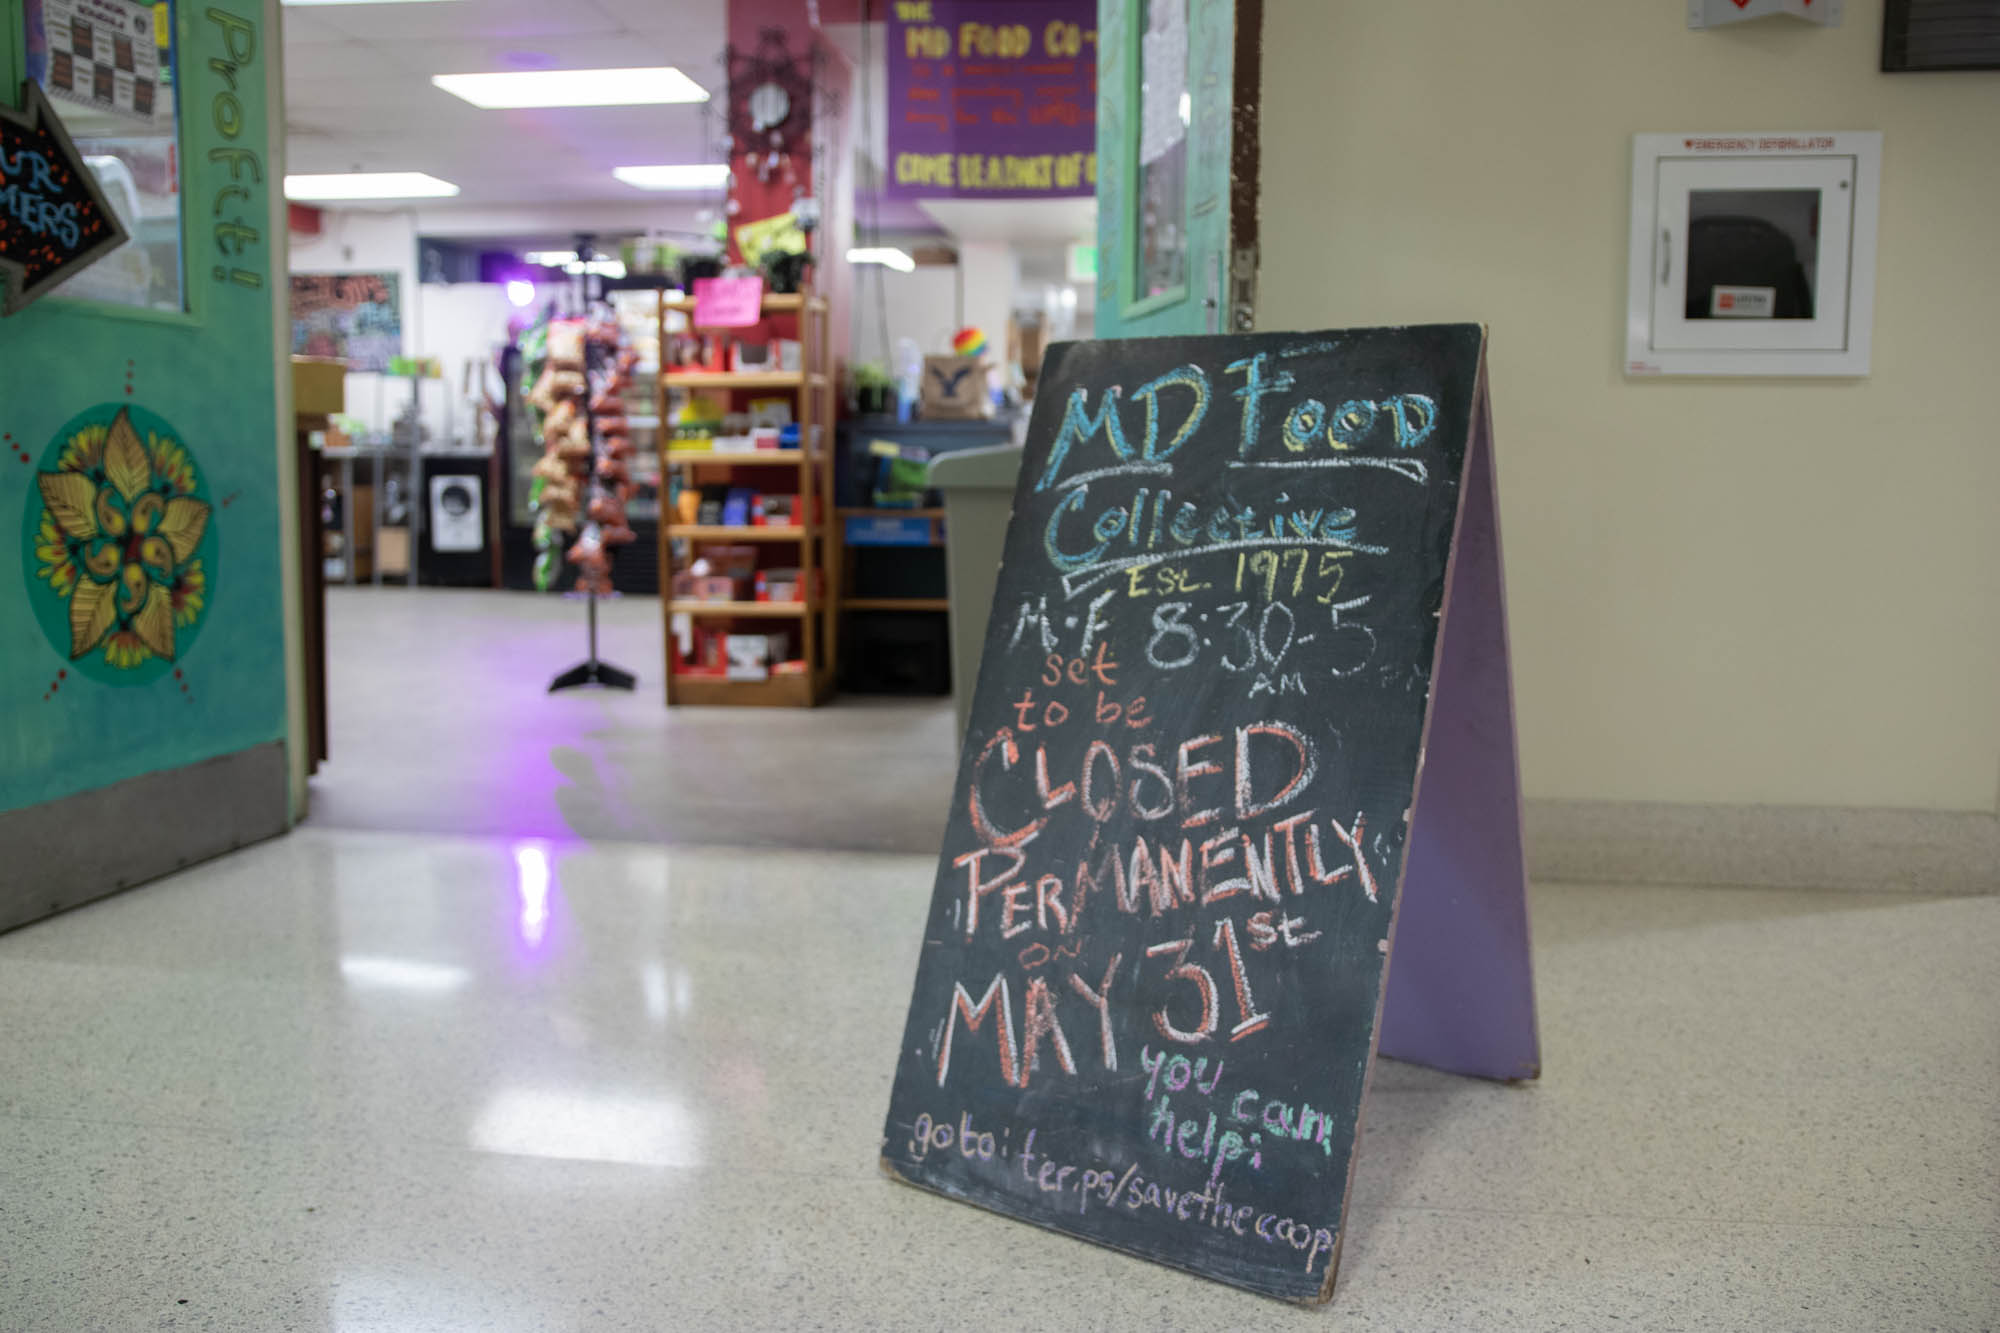 ProFit!
UR
MERS
THE
MD FOOD CO-
COME BE A PART OF O
EMERGENCY DEFIBRILLATOR
MD Food
Collective
Est. 1975
M-F 8:30-5
AM
set
to be
CLOSED
PERMANENTLY
ON
MAY 31st
you can
help:
go to: ter.ps/savethecoop